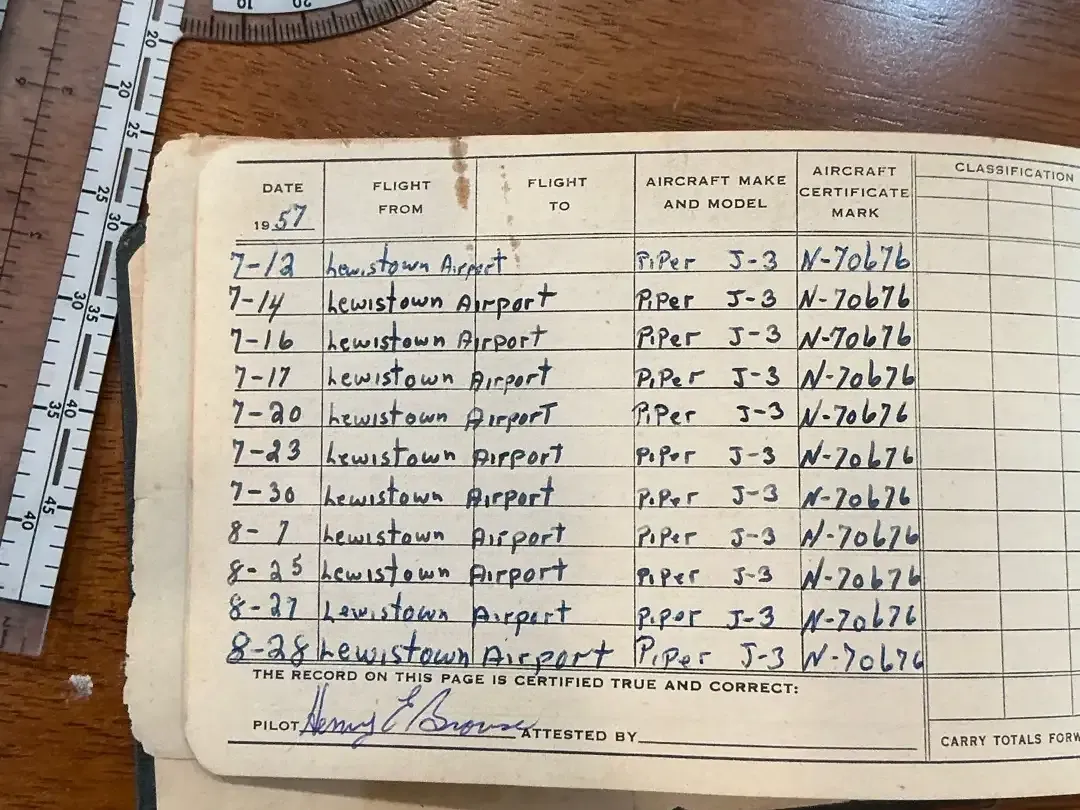 10 20
20 20
25
25 30
30 35
35 40
40 45
DATE FLIGHT FROM FLIGHT TO AIRCRAFT MAKE AND MODEL AIRCRAFT CERTIFICATE MARK CLASSIFICATION
1957
7-12 Lewistown Airport PiPer J-3 N-70676
7-14 Lewistown Airport PiPer J-3 N-70676
7-16 Lewistown Airport PiPer J-3 N-70676
7-17 Lewistown Airport PiPer J-3 N-70676
7-20 Lewistown Airport PiPer J-3 N-70676
7-23 Lewistown Airport PiPer J-3 N-70676
7-30 Lewistown Airport PiPer J-3 N-70676
8-7 Lewistown Airport PiPer J-3 N-70676
8-25 Lewistown Airport PiPer J-3 N-70676
8-27 Lewistown Airport PiPer J-3 N-70676
8-28 Lewistown Airport PiPer J-3 N-70676
THE RECORD ON THIS PAGE IS CERTIFIED TRUE AND CORRECT:
PILOT Henry E Brouse ATTESTED BY
CARRY TOTALS FORW